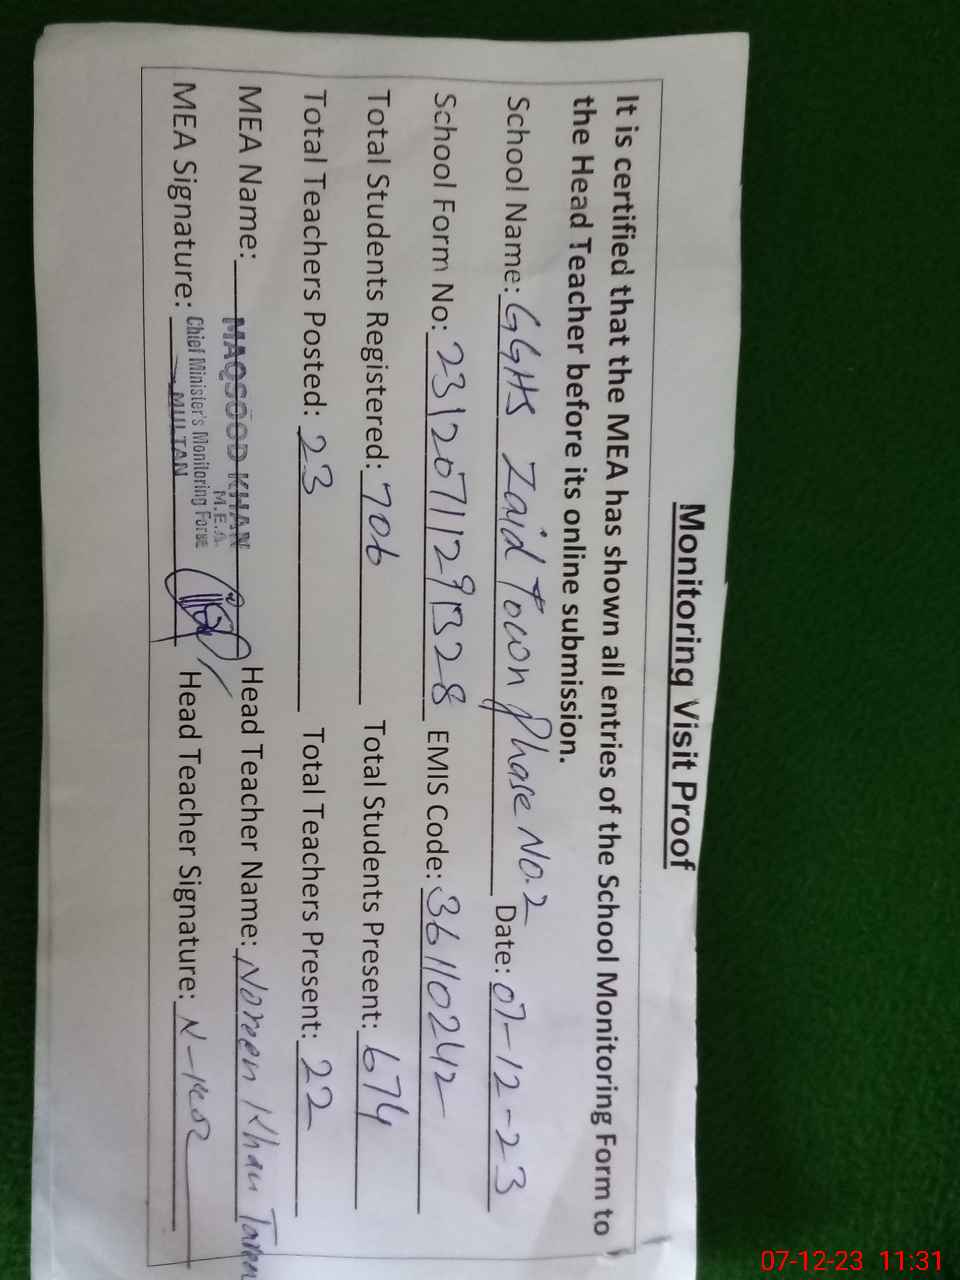 Monitoring Visit Proof
It is certified that the MEA has shown all entries of the School Monitoring Form to
the Head Teacher before its online submission.
School Name: GGHS Zaid Town Phase No.2 Date: 07-12-23
School Form No: 231207112928 EMIS Code: 36110242
Total Students Registered: 706 Total Students Present: 674
Total Teachers Posted: 23 Total Teachers Present: 22
MEA Name: MAQSOOD KHAN Head Teacher Name: Noreen Khan Tareen
M.E.A.
Chief Minister's Monitoring Force
MEA Signature: MULTAN Head Teacher Signature:
07-12-23 11:31